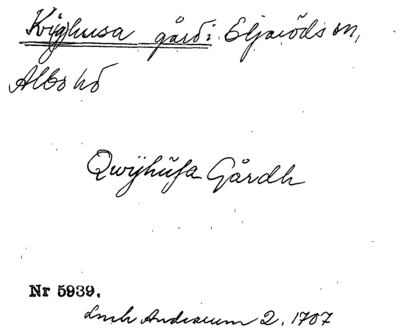 Kvighusa gård i Eljaröds sn,
Albo hd
Qwijhusa Gårdh
Nr 5939.
Lmk Andrarum 2. 1707